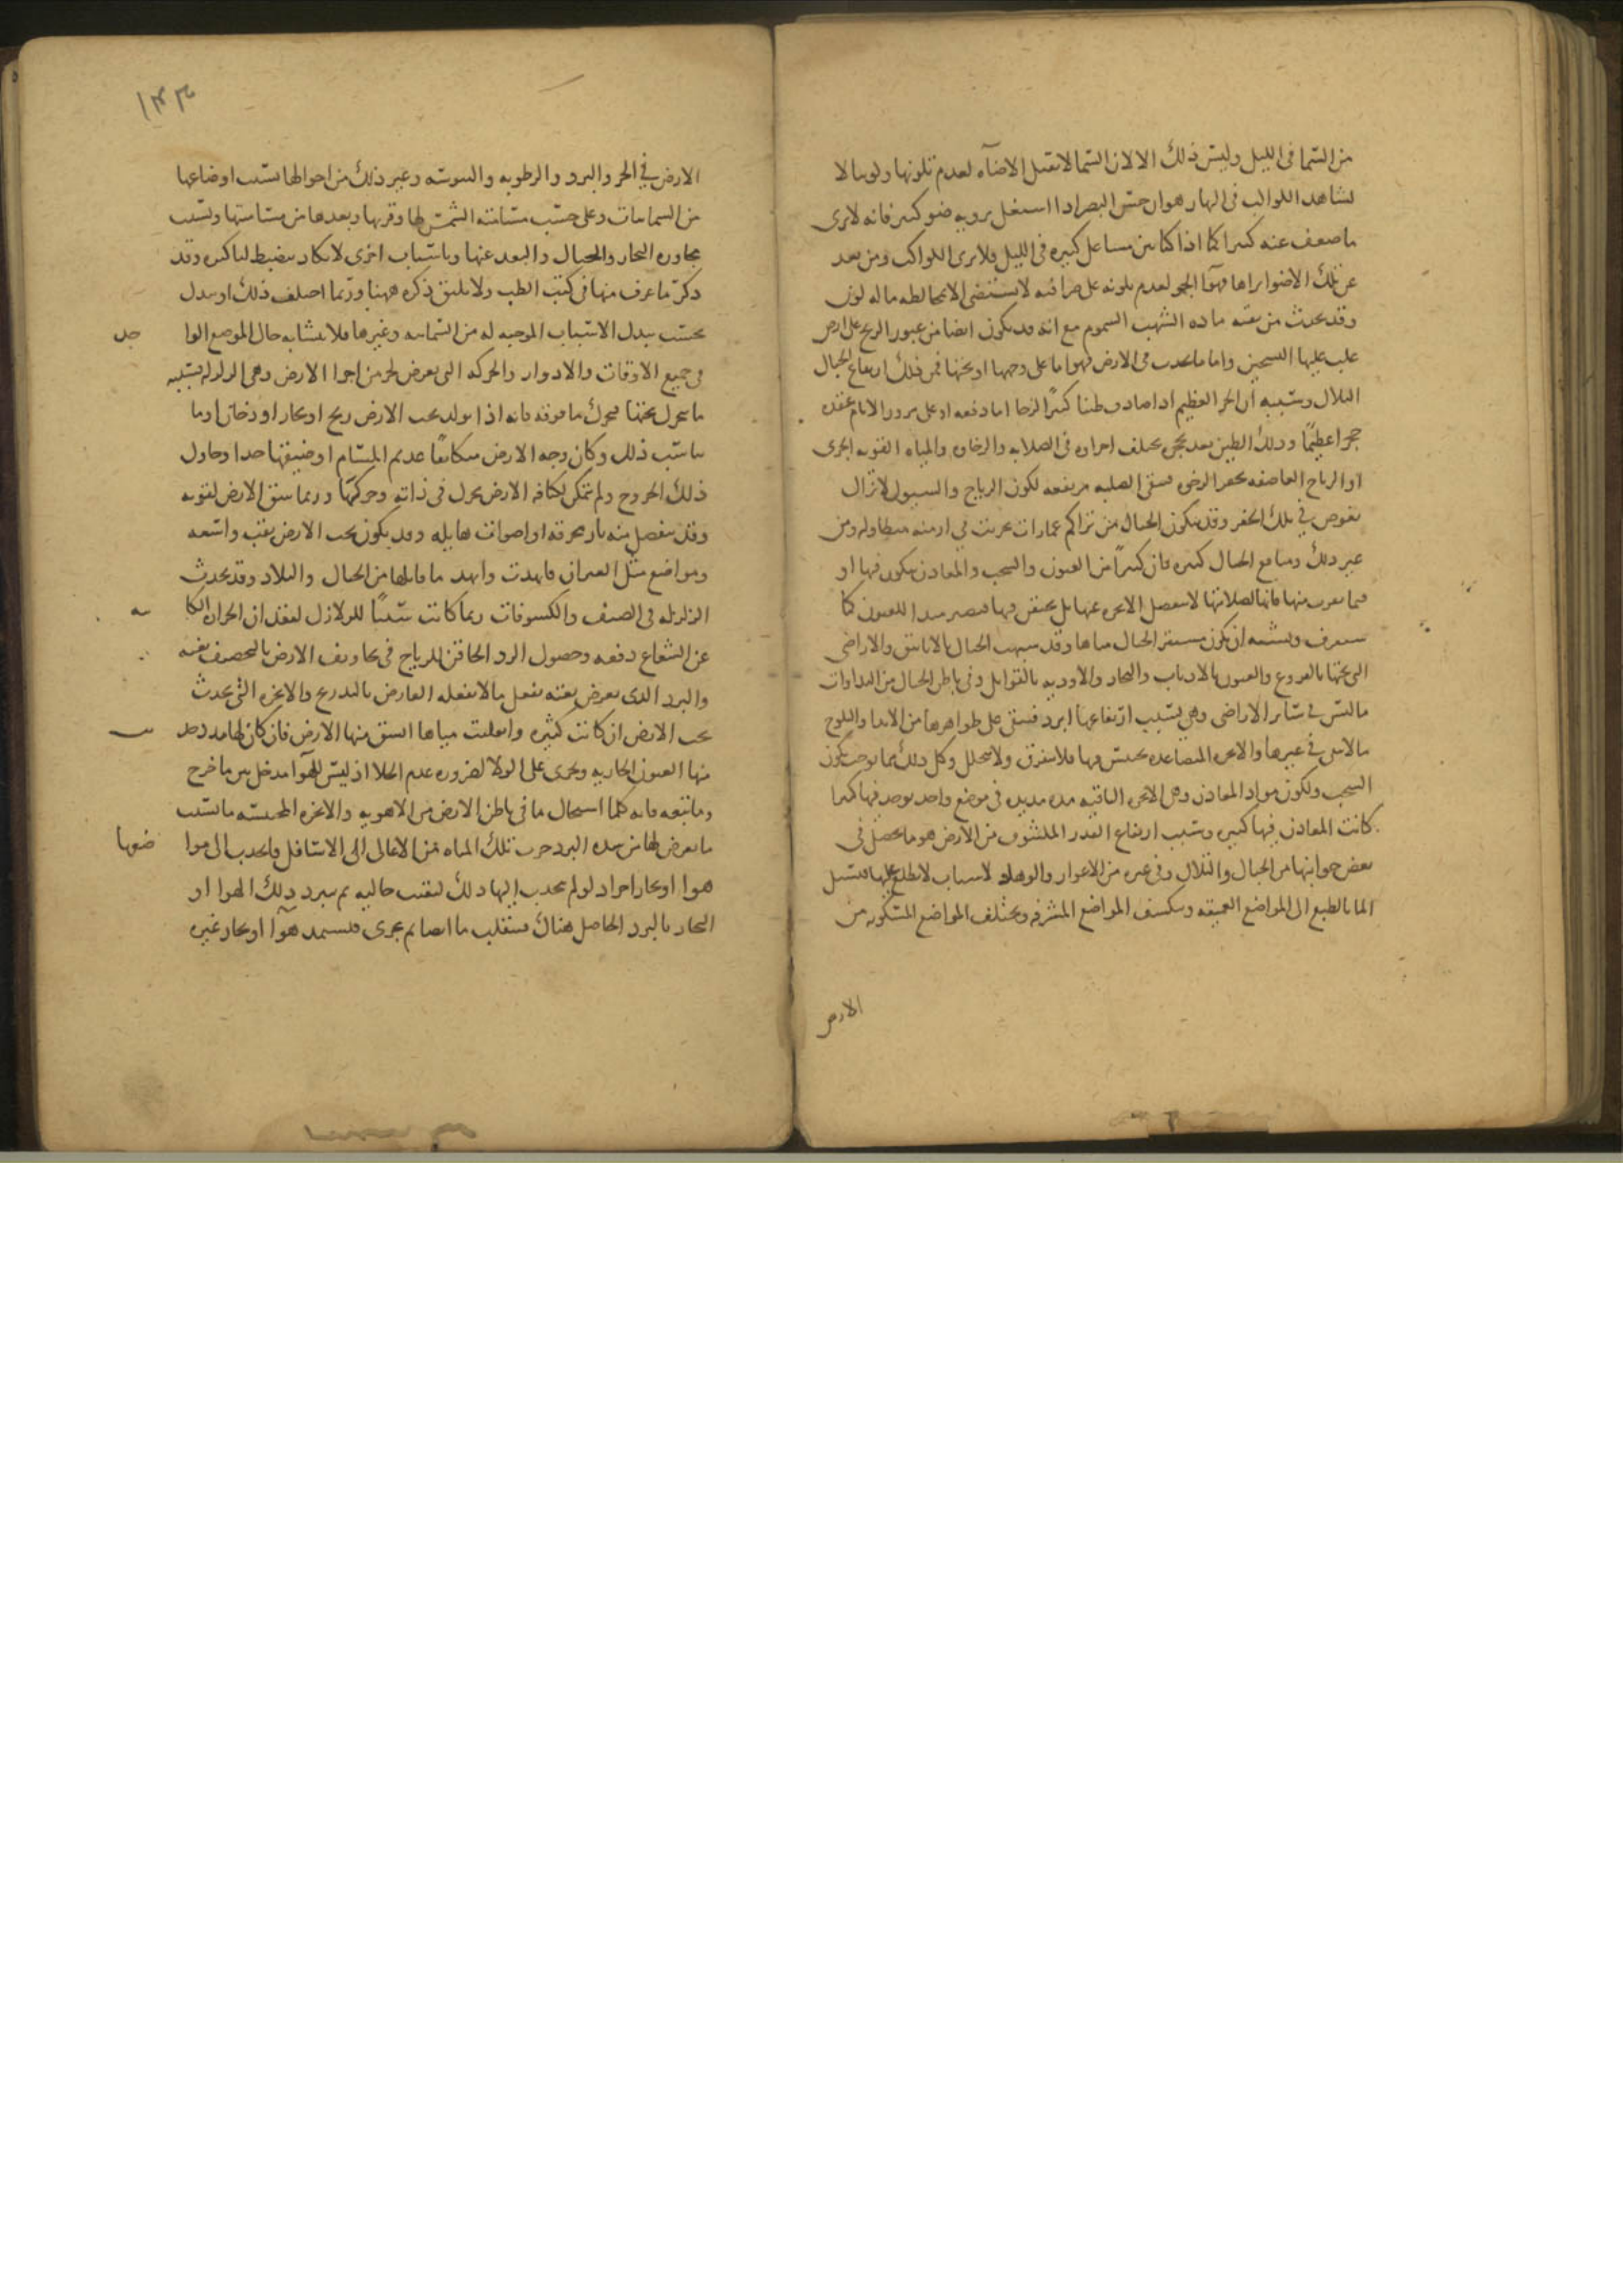 من السما فى الليل وليس ذلك الا لان السما لا تقبل الاضآه لعدم تلونها ولونها لا
نشاهد الكواكب فى النهار هو ان حس البصر اذا اشتغل بروية ضو كثير فانه لا يرى
ما ضعف عنه كثيرا كما اذا كنا بين مشاعل كثيره فى الليل فلا نرى الكواكب ومن بعد
عن تلك الاضوا يراها فهوآ الجو لعدم تلونه على صرافته لا يستضى الا بمخالطه ما له لون
وقد يحدث من بقيه ماده الشهب السموم مع انه قد يكون ايضا من عبور الريح على ارض
غلب عليها التسخين واما ما يحدث فى الارض فهو اما على وجهها او تحتها فمن ذلك ارتفاع الجبال
التلال وسببه ان الحر العظيم اذا صادف طينا كثيرًا لزجا اما دفعه او على مرور الايام عقده
حجرا عظيمًا وذلك الطين بعد تحجره يختلف اجزاوه فى الصلابه والرخاوه والمياه القويه الجرى
او الرياح العاصفه تحفر الرخو فتبقى الصلبه مرتفعه لكون الرياح والسيول لا تزال
تغوص فى تلك الحفر وقد يتكون الجبال من تراكم عمارات خربت فى ازمنه متطاوله ومن
غير ذلك ومنافع الجبال كثيره فان كثيرًا من العيون والسحب والمعادن يتكون فيها او
فيما يقرب منها فانها لصلابتها لا تنفصل الابخره عنها بل تحتقن فيها فتصير مبدا للعيون كما
ستعرف ويشبه ان يكون مستقر الجبال مياها وقد شبهت الجبال بالانابيق والاراضى
التى تحتها بالقروع والعيون بالاذناب والبحار والاوديه بالقوابل وفى باطن الجبال من النداوات
ما ليس فى سائر الاراضى وهى بسبب ارتفاعها ابرد فتبقى على ظواهرها من الاندا والثلوج
ما لا يبقى فى غيرها والابخره المتصاعده تحتبس فيها فلا تتفرق ولا تتحلل وكل ذلك مما يوجب تكون
السحب ولكون مواد المعادن وهى الابخره الباقيه مده مديده فى موضع واحد توجد فيها كثيرا
كانت المعادن فيها كثيره وسبب ارتفاع القدر المكشوف من الارض هو ما يحصل فى
بعض جوانبها من الجبال والتلال وفى غيره من الاغوار والوهاد لاسباب لا نطلع عليها فيسيل
الما بالطبع الى المواضع العميقه وينكشف المواضع المشرفه ويختلف المواضع المسكونه من
الارض
١٤٣
الارض فى الحر والبرد والرطوبه واليبوسه وغير ذلك من احوالها بسبب اوضاعها
من السماويات وعلى حسب مسامته الشمس لها وقربها وبعدها من مسامتتها وبسبب
مجاوره البحار والجبال والبعد عنها وباسباب اخرى لا تكاد تنضبط لنا كثيره وقد
ذكر ما عرف منها فى كتب الطب ولا يليق ذكره ههنا وربما اختلف ذلك او تبدل
بحسب تبدل الاسباب الموجبه له من السماويه وغيرها فلا يتشابه حال الموضع الوا حد
فى جميع الاوقات والادوار والحركه التى تعرض لجزء من اجزا الارض وهى الزلزله بسبب
ما يتحرك تحتها فيحرك ما فوقه فانه اذا تولد تحت الارض ريح او بخار او دخان او ما
يناسب ذلك وكان وجه الارض متكاثفًا عديم المسام او ضيقها جدا وحاول
ذلك الخروج ولم يتمكن لكثافه الارض تحرك فى ذاته وحركها وربما شق الارض لقوته
وقد ينفصل منه نار محرقه او اصوات هايله وقد يكون تحت الارض ثقب واسعه
ومواضع مثل الغيران فانهدت وانهد ما قابلها من الجبال والبلاد وقد تحدث
الزلزله فى الصيف والكسوفات ربما كانت سببًا للزلازل لفقدان الحراره الكا ينه
عن الشعاع دفعه وحصول البرد الحاقن للرياح فى تجاويف الارض بالتخصيف بغته
والبرد الذى يعرض بغته يفعل ما لا يفعله العارض بالتدريج والابخره التى تحدث
تحت الارض ان كانت كثيره وانقلبت مياها انشق منها الارض فان كان لها مدد حدثت
منها العيون الجاريه وتجرى على الولا لضروره عدم الخلا اذ ليس للهوآ مدخل بين ما خرج
وما تبعه فانه كلما استحال ما فى باطن الارض من الاهويه والابخره المحتبسه ما بسبب
ما يعرض لها من شده البرد جرت تلك المياه من الاعالى الى الاسافل فانجذب الى موا ضعها
هوا او بخار اخر اذ لو لم ينجذب اليها ذلك لبقيت خاليه ثم يبرد ذلك الهوا او
البخار بالبرد الحاصل هناك فينقلب ما ايضا ثم يجرى فيستمد هوآ او بخار غيره